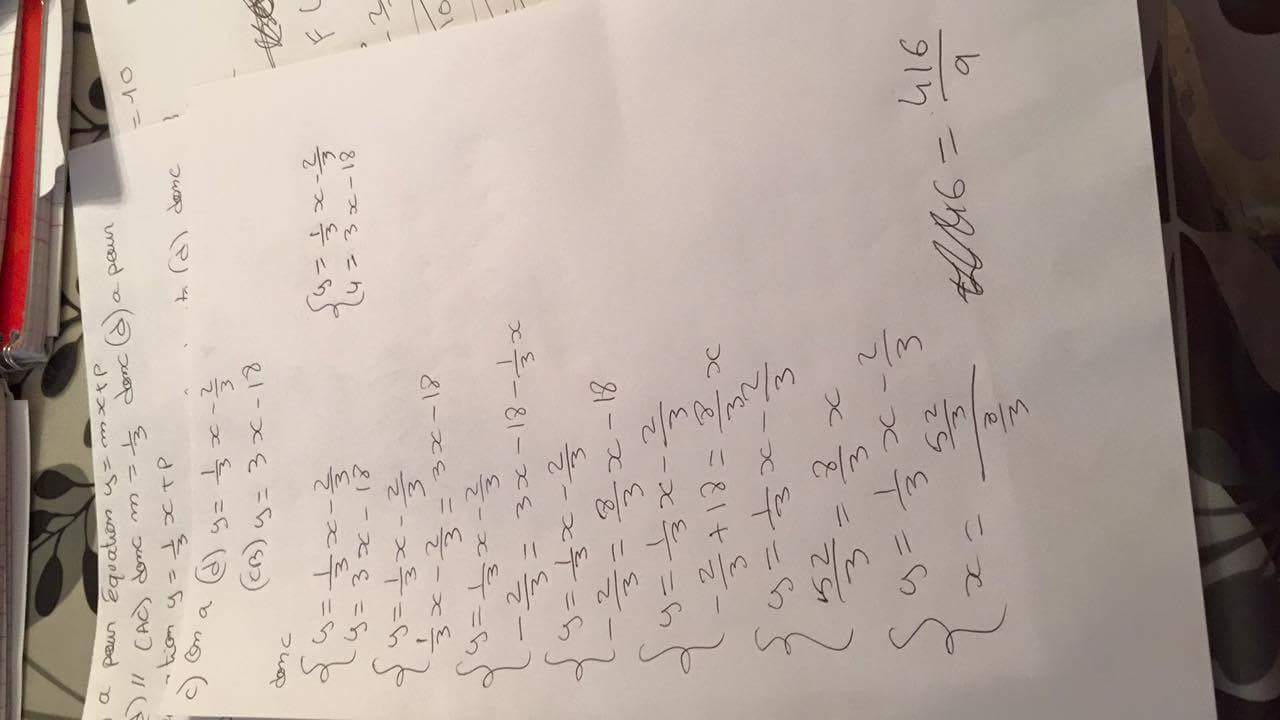 a pour Equation y = mx+p
// (AC) donc m = 1/3 donc (d) a pour
-tion y = 1/3 x + p
= 10
c) on a (d) y = 1/3 x - 2/3
(CB) y = 3x - 18
donc
{ y = 1/3 x - 2/3
y = 3x - 18
{ y = 1/3 x - 2/3
y = 3x - 18
{ y = 1/3 x - 2/3
1/3 x - 2/3 = 3x - 18
{ y = 1/3 x - 2/3
- 2/3 = 3x - 18 - 1/3 x
{ y = 1/3 x - 2/3
- 2/3 = 8/3 x - 18
{ y = 1/3 x - 2/3
- 2/3 + 18 = 8/3 x
{ y = 1/3 x - 2/3
52/3 = 8/3 x
{ y = 1/3 x - 2/3
x = 52/3 / 8/3
46 = 416/9
(d) donc